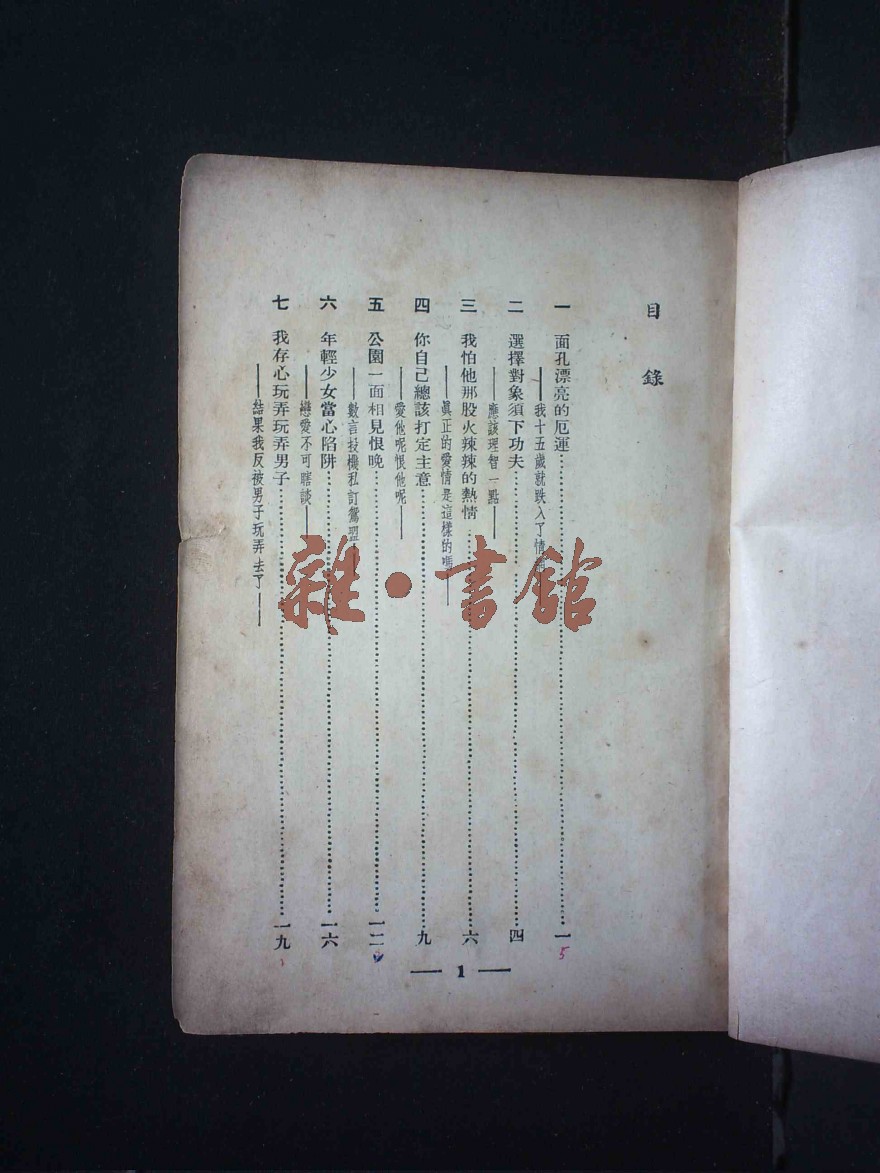 目錄
一 面孔漂亮的厄運……一
——我十五歲就跌入了情
二 選擇對象須下功夫……四
——應該理智一點——
三 我怕他那股火辣辣的熱情……六
——眞正的愛情是這樣的嗎——
四 你自己總該打定主意……九
——愛他呢恨他呢——
五 公園一面相見恨晚……一二
——數言投機私訂鴛盟——
六 年輕少女當心陷阱……一六
——戀愛不可瞎談——
七 我存心玩弄玩弄男子……一九
——結果我反被男子玩弄去了——
5
— 1 —
雜·書館